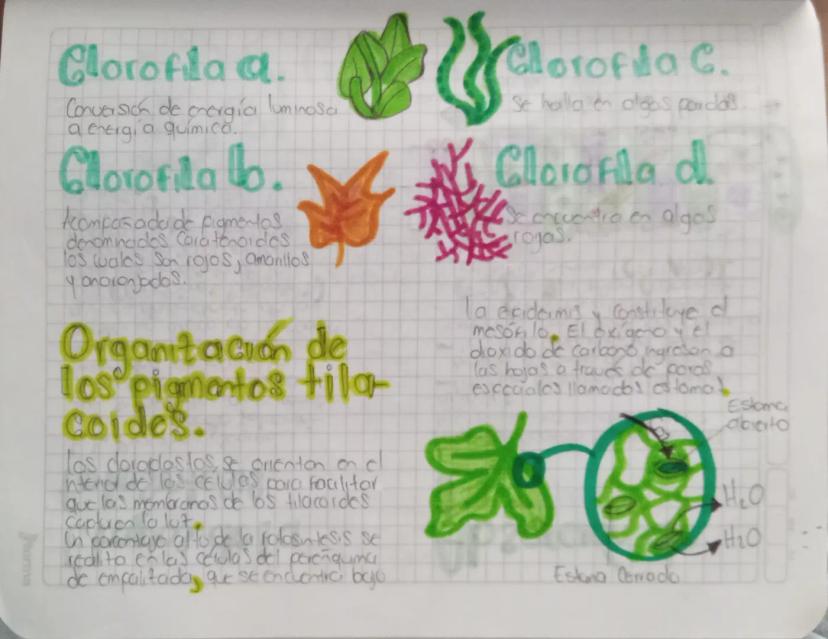 Clorofila a.
Conversión de energía luminosa
a energía química.
Clorofila b.
Acompañada de pigmentos
denominados carotenoides
los cuales son rojos, amarillos
y anaranjados.
Clorofila c.
Se halla en algas pardas.
Clorofila d.
Se encuentra en algas
rojas.
Organización de
los pigmentos tila-
coides.
Los cloroplastos, se orientan en el
interior de las células para facilitar
que las membranas de los tilacoides
capturen la luz.
Un porcentaje alto de la fotosíntesis se
realiza en las células del parénquima
de empalizada, que se encuentra bajo
la epidermis y constituye el
mesófilo. El oxígeno y el
dioxido de carbono ingresan a
las hojas a través de poros
especiales llamados estomas.
Estoma
abierto
H2O
H2O
Estoma Cerrado